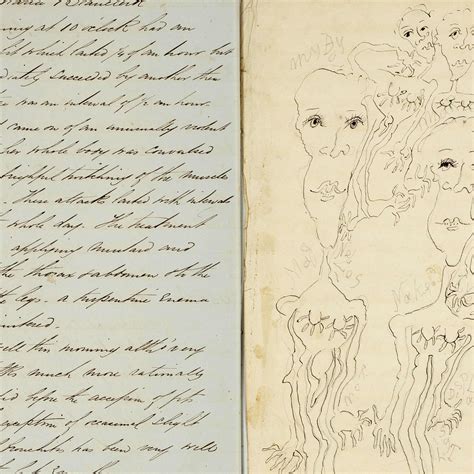 ning at 10 o'clock had an
which lasted ½ of an hour but
diately succeeded by another then
e was an interval of ½ an hour.
t came on of an unusually violent
her whole body was convulsed
frightful twitching of the muscles
These attacks lasted with intervals
whole day. The treatment
applying mustard and
the thorax & abdomen & to the
legs. a turpentine enema
nistered.
well this morning altho' very
this much more rationally
did before the accession of fits
exception of occasional slight
Bronchitis has been very well
May By